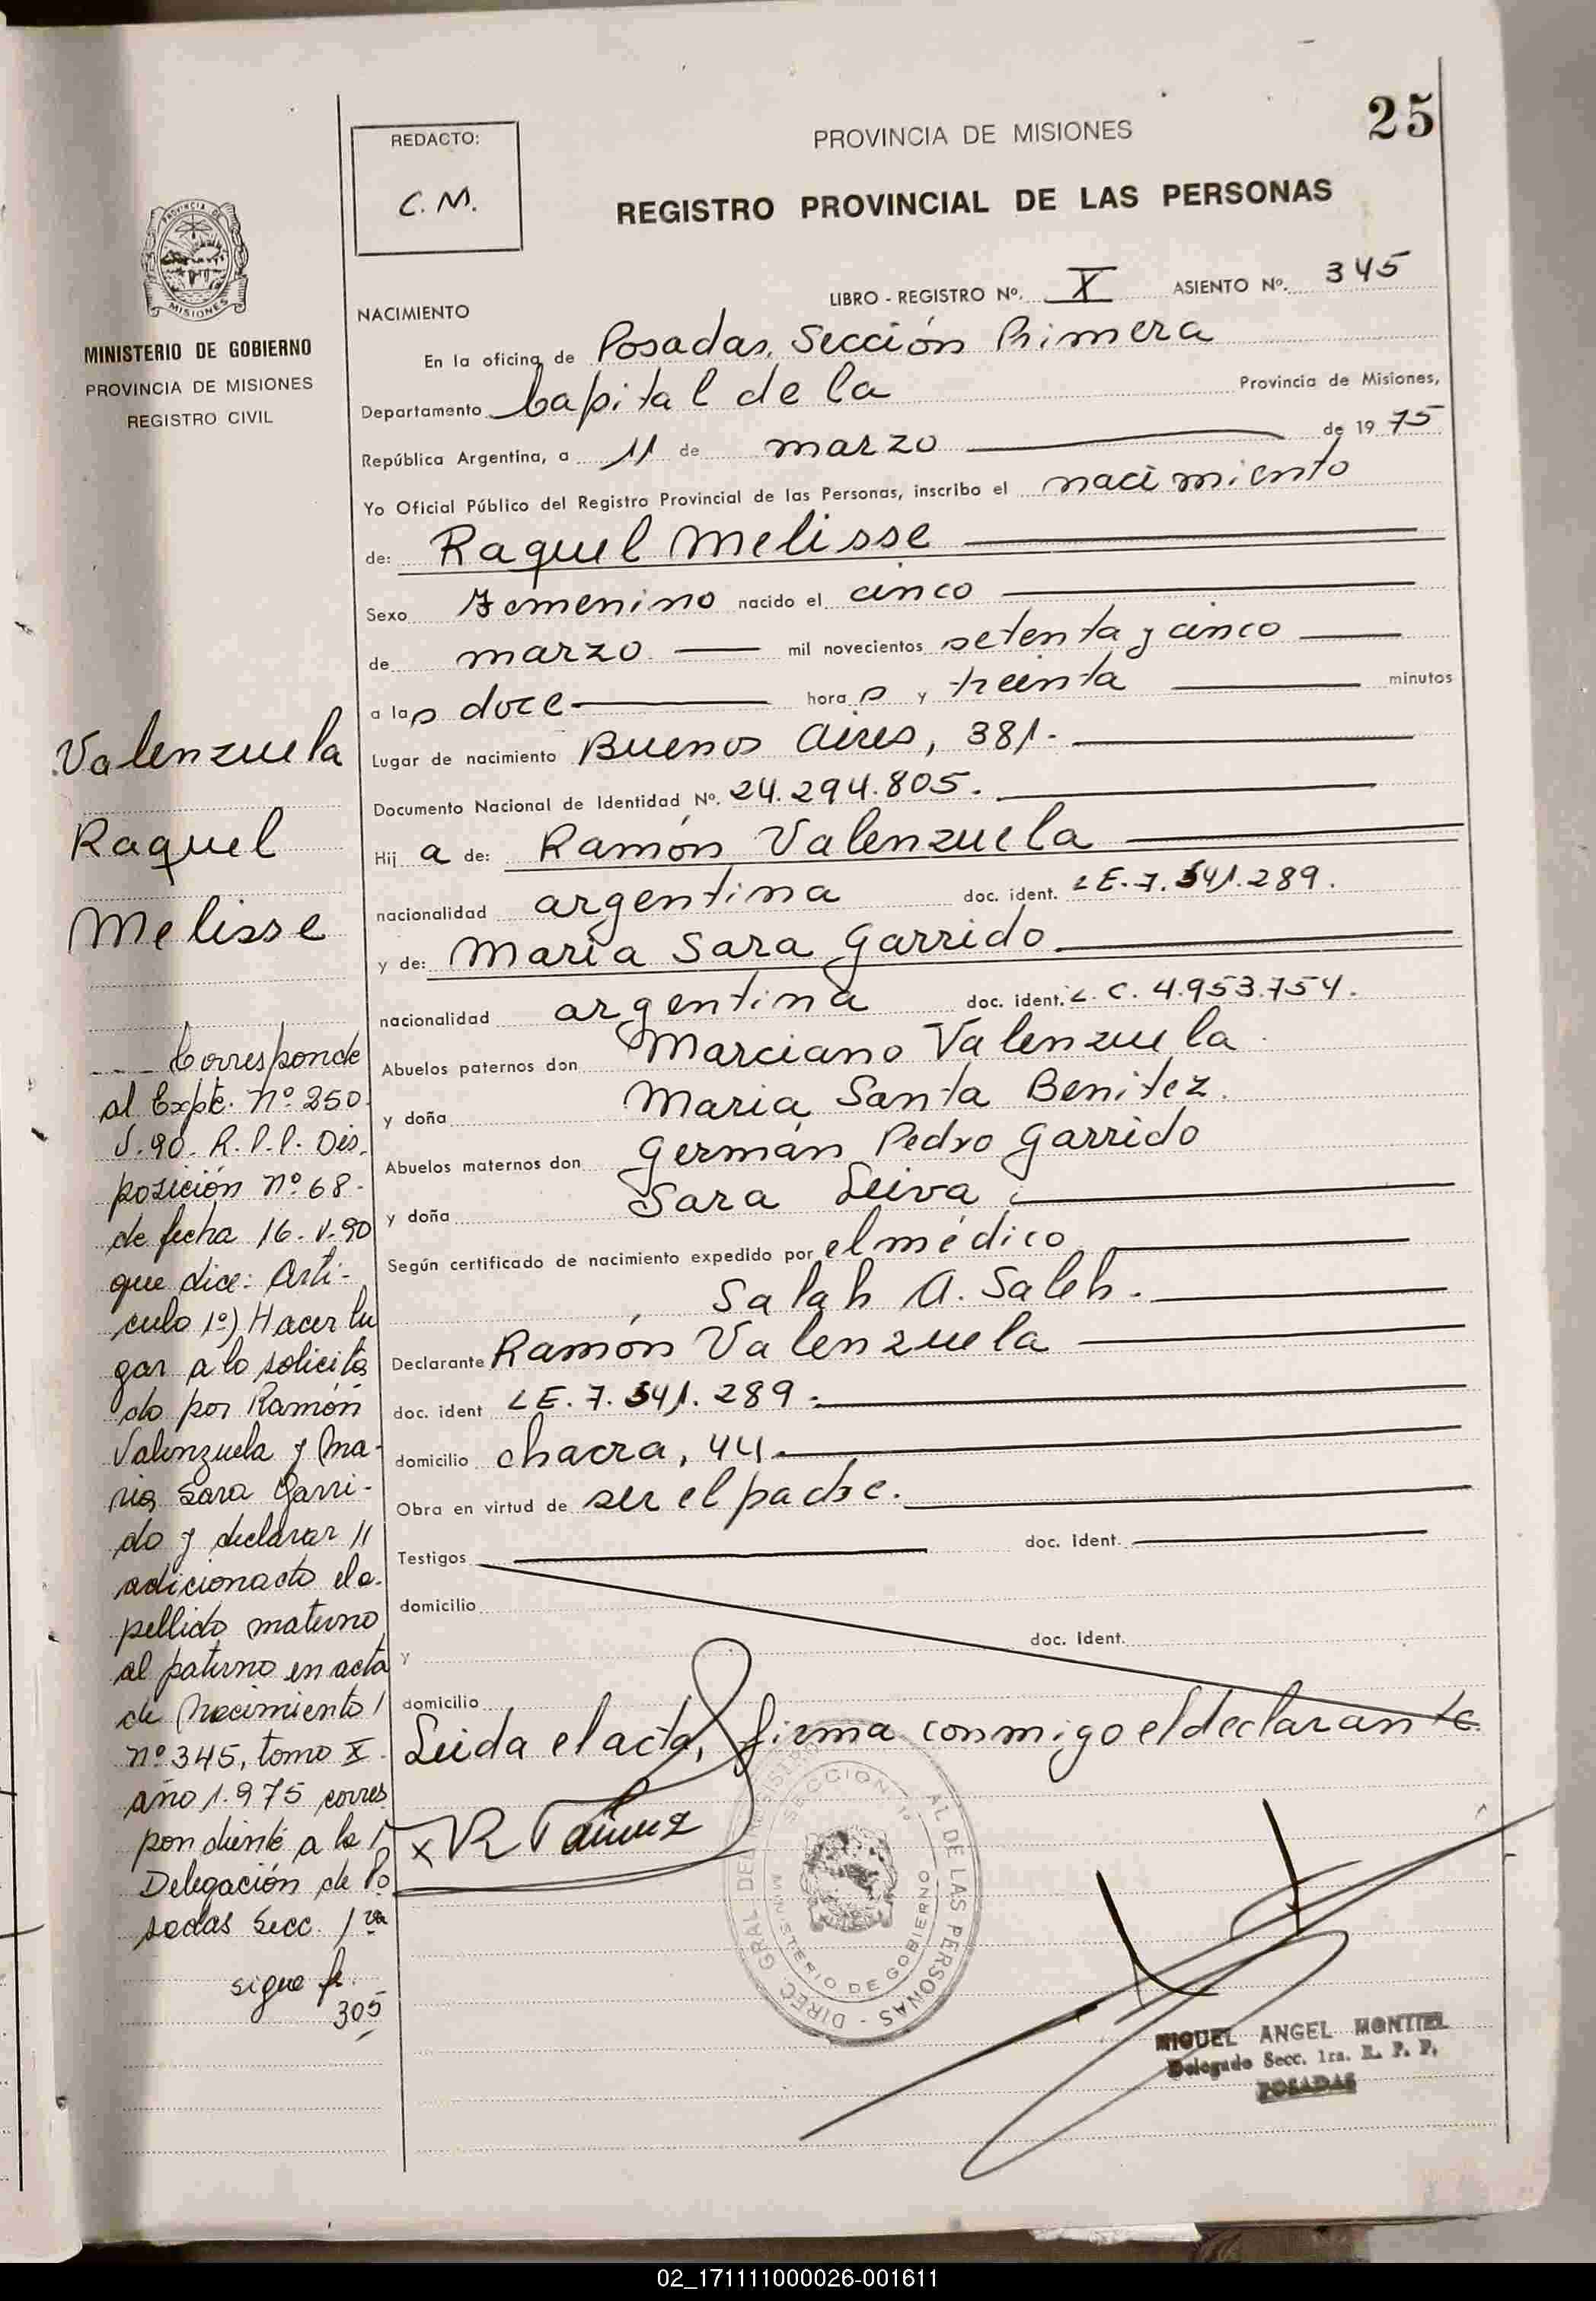 25
REDACTO:
C. M.
PROVINCIA DE MISIONES
REGISTRO PROVINCIAL DE LAS PERSONAS
PROVINCIA DE
MISIONES
MINISTERIO DE GOBIERNO
PROVINCIA DE MISIONES
REGISTRO CIVIL
LIBRO - REGISTRO Nº. X ASIENTO Nº. 345
NACIMIENTO
En la oficina de Posadas, Sección Primera
Departamento Capital de la Provincia de Misiones,
República Argentina, a 11 de marzo de 1975
Yo Oficial Público del Registro Provincial de las Personas, inscribo el nacimiento
de: Raquel Melisse
Sexo Femenino nacido el cinco
de marzo mil novecientos setenta y cinco
a las doce horas y treinta minutos
Lugar de nacimiento Buenos Aires, 381.
Documento Nacional de Identidad Nº. 24.294.805.
Hija de: Ramón Valenzuela
nacionalidad argentina doc. ident. LE. 7.541.289.
y de: Maria Sara Garrido
nacionalidad argentina doc. ident. L. C. 4.953.754.
Abuelos paternos don Marciano Valenzuela
y doña Maria Santa Benitez.
Abuelos maternos don Germán Pedro Garrido
y doña Sara Leiva
Según certificado de nacimiento expedido por el médico
Salah A. Saleh.
Declarante Ramón Valenzuela
doc. ident LE. 7.541.289.
domicilio chacra, 44
Obra en virtud de ser el padre.
Testigos doc. ident.
domicilio
y doc. ident.
domicilio
Leida el acta, firma conmigo el declarante.
Valenzuela
Raquel
Melisse
Corresponde
al Expte. nº 250.
V. 90. R. P. P. Dis.
posición nº 68.
de fecha 16. V. 90
que dice: Arti-
culo 1º) Hacer lu
gar a lo solicita
do por Ramón
Valenzuela y Ma-
ria Sara Garri-
do y declarar //
adicionado el a-
pellido materno
al paterno en acta
de Nacimiento /
nº 345, tomo X
año 1.975 corres
pondiente a la /
Delegación de Po
sadas Secc. 1ra
sigue f.
305
x R
DIREC. GRAL DEL REGISTRO AL DE LAS PERSONAS
SECCION 1º
MINISTERIO DE GOBIERNO
MIGUEL ANGEL MONTIEL
Delegado Secc. 1ra. R. P. P.
POSADAS
02_171111000026-001611